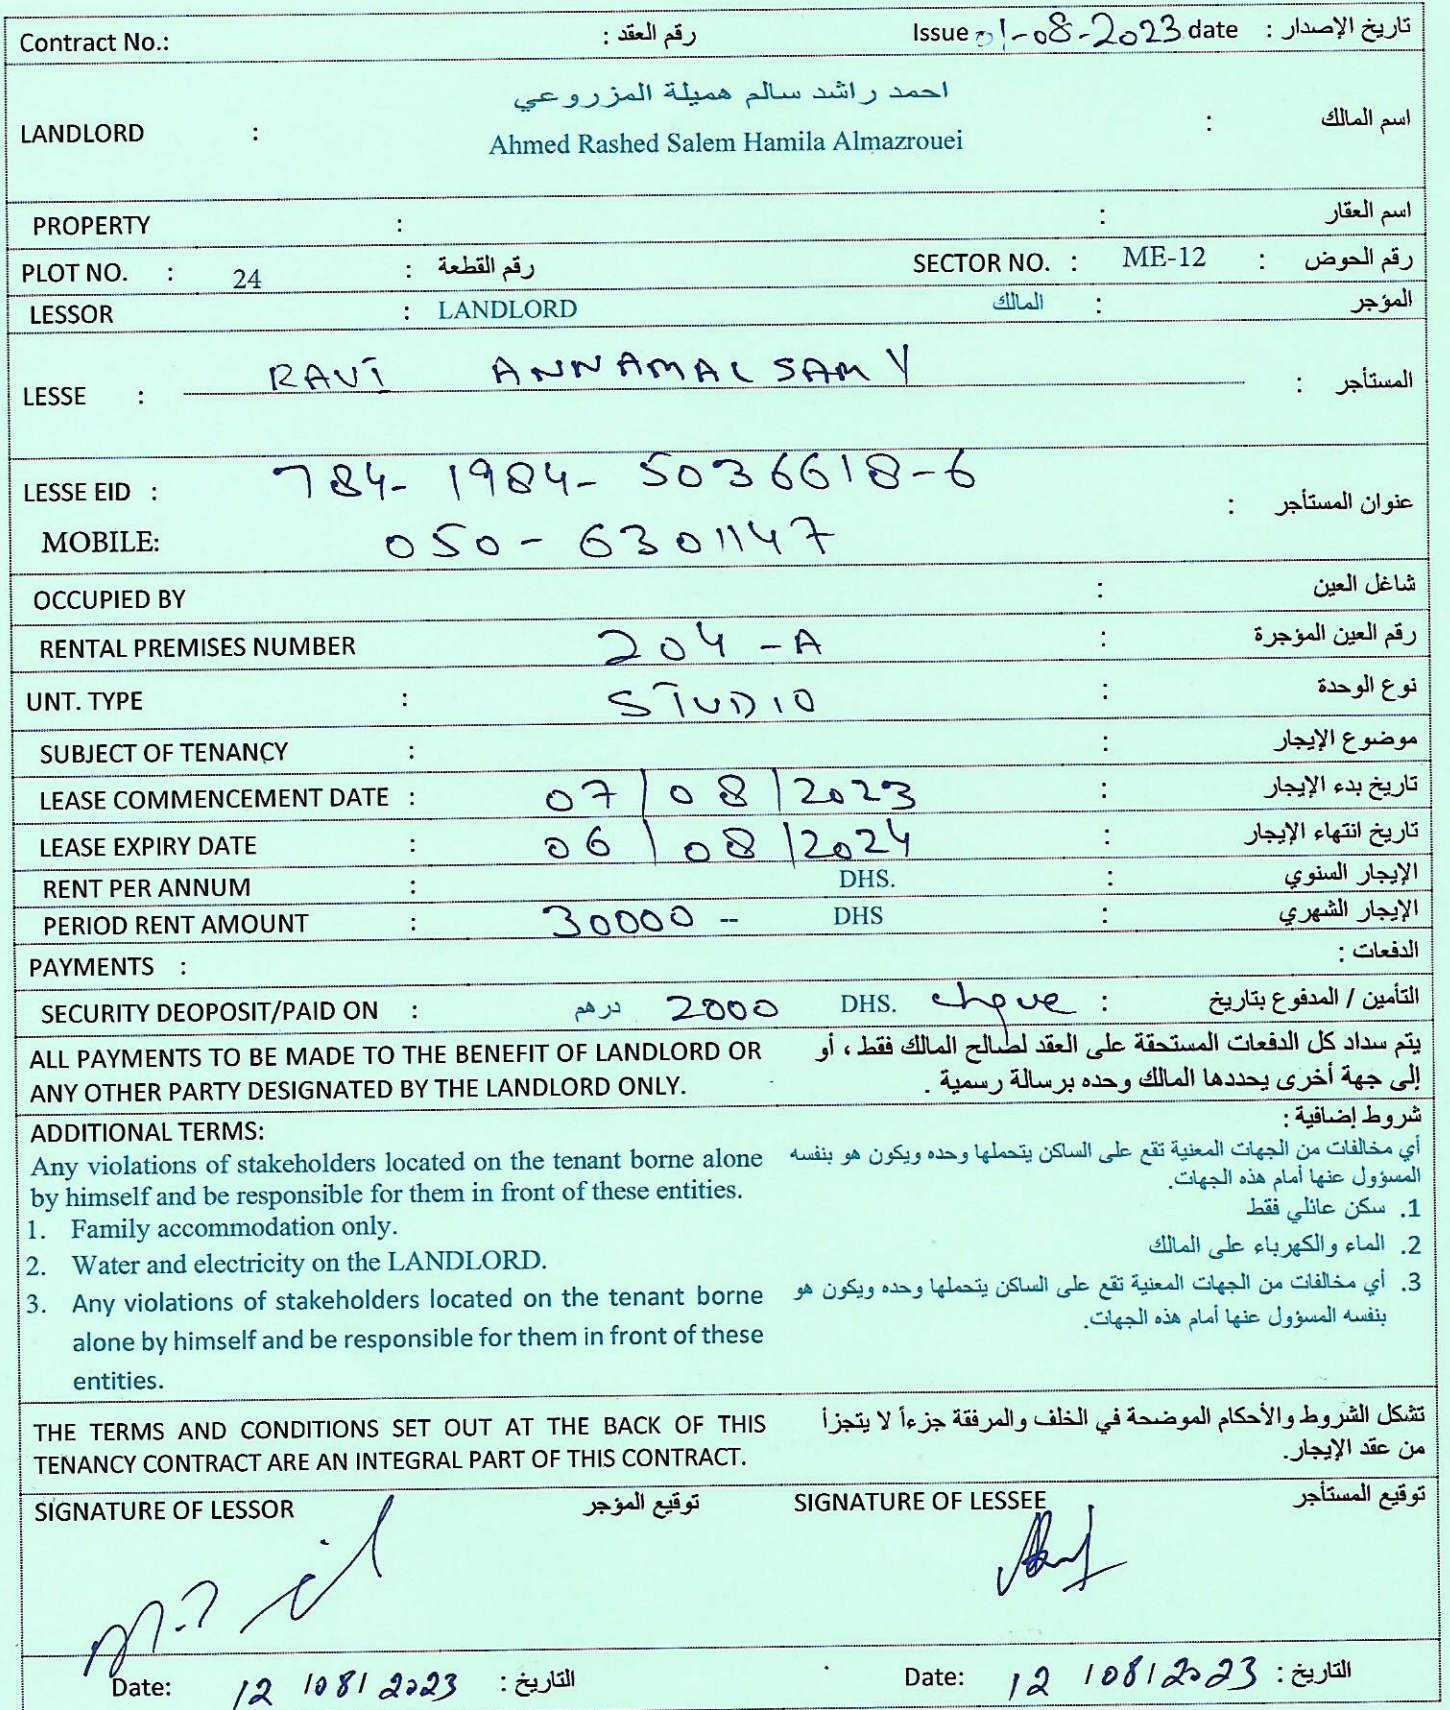 Contract No.: رقم العقد : Issue 01-08-2023 date تاريخ الإصدار :
احمد راشد سالم هميلة المزروعي
LANDLORD : Ahmed Rashed Salem Hamila Almazrouei : اسم المالك
PROPERTY : : اسم العقار
PLOT NO. : 24 : رقم القطعة SECTOR NO. : ME-12 : رقم الحوض
LESSOR : LANDLORD المالك : المؤجر
LESSE : RAVI ANNAMALSAMY : المستأجر
LESSE EID : 784-1984-5036618-6 : عنوان المستأجر
MOBILE: 050-6301147
OCCUPIED BY : شاغل العين
RENTAL PREMISES NUMBER 204-A : رقم العين المؤجرة
UNT. TYPE : STUDIO : نوع الوحدة
SUBJECT OF TENANCY : : موضوع الإيجار
LEASE COMMENCEMENT DATE : 07/08/2023 : تاريخ بدء الإيجار
LEASE EXPIRY DATE : 06/08/2024 : تاريخ انتهاء الإيجار
RENT PER ANNUM : DHS. : الإيجار السنوي
PERIOD RENT AMOUNT : 30000 -- DHS : الإيجار الشهري
PAYMENTS : الدفعات :
SECURITY DEOPOSIT/PAID ON : درهم 2000 DHS. : التأمين / المدفوع بتاريخ
ALL PAYMENTS TO BE MADE TO THE BENEFIT OF LANDLORD OR
ANY OTHER PARTY DESIGNATED BY THE LANDLORD ONLY.
يتم سداد كل الدفعات المستحقة على العقد لصالح المالك فقط ، أو
إلى جهة أخرى يحددها المالك وحده برسالة رسمية .
ADDITIONAL TERMS:
Any violations of stakeholders located on the tenant borne alone
by himself and be responsible for them in front of these entities.
1. Family accommodation only.
2. Water and electricity on the LANDLORD.
3. Any violations of stakeholders located on the tenant borne
alone by himself and be responsible for them in front of these
entities.
شروط إضافية :
أي مخالفات من الجهات المعنية تقع على الساكن يتحملها وحده ويكون هو بنفسه
المسؤول عنها أمام هذه الجهات.
1. سكن عائلي فقط
2. الماء والكهرباء على المالك
3. أي مخالفات من الجهات المعنية تقع على الساكن يتحملها وحده ويكون هو
بنفسه المسؤول عنها أمام هذه الجهات.
THE TERMS AND CONDITIONS SET OUT AT THE BACK OF THIS
TENANCY CONTRACT ARE AN INTEGRAL PART OF THIS CONTRACT.
تشكل الشروط والأحكام الموضحة في الخلف والمرفقة جزءاً لا يتجزأ
من عقد الإيجار.
SIGNATURE OF LESSOR توقيع المؤجر SIGNATURE OF LESSEE توقيع المستأجر
Date: 12/08/2023 التاريخ : Date: 12/08/2023 التاريخ :